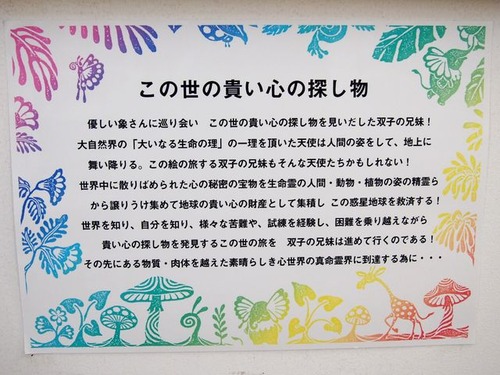 この世の貴い心の探し物
優しい象さんに巡り会い　この世の貴い心の探し物を見いだした双子の兄妹！
大自然界の「大いなる生命の理」の一理を頂いた天使は人間の姿をして、地上に
舞い降りる。この絵の旅する双子の兄妹もそんな天使たちかもしれない！
世界中に散りばめられた心の秘密の宝物を生命霊の人間・動物・植物の姿の精霊ら
から譲りうけ集めて地球の貴い心の財産として集積し この惑星地球を救済する！
世界を知り、自分を知り、様々な苦難や、試練を経験し、困難を乗り越えながら
貴い心の探し物を発見するこの世の旅を　双子の兄妹は進めて行くのである！
その先にある物質・肉体を越えた素晴らしき心世界の真命霊界に到達する為に・・・